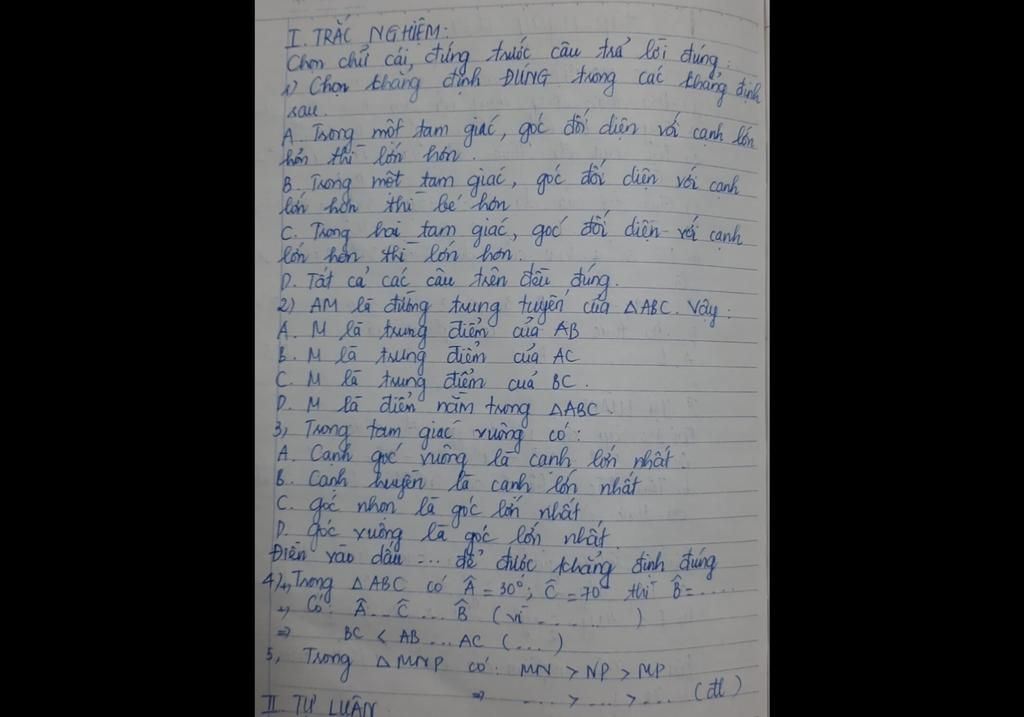 I. TRẮC NGHIỆM:
Chọn chữ cái, đứng trước câu trả lời đúng:
1) Chọn khẳng định ĐÚNG trong các khẳng định
sau.
A. Trong một tam giác, góc đối diện với cạnh lớn
hơn thì lớn hơn.
B. Trong một tam giác, góc đối diện với cạnh
lớn hơn thì bé hơn
C. Trong hai tam giác, góc đối diện với cạnh
lớn hơn thì lớn hơn.
D. Tất cả các câu trên đều đúng.
2) AM là đường trung tuyến của △ABC. Vậy:
A. M là trung điểm của AB
B. M là trung điểm của AC
C. M là trung điểm của BC.
D. M là điểm nằm trong △ABC.
3, Trong tam giác vuông có:
A. Cạnh góc vuông là cạnh lớn nhất.
B. Cạnh huyền là cạnh lớn nhất
C. góc nhọn là góc lớn nhất
D. góc vuông là góc lớn nhất.
Điền vào dấu ... để được khẳng định đúng
4) +, Trong △ABC có Â = 30°; Ĉ = 70° thì B̂ = .....
+, Có: Â ... Ĉ ... B̂ (vì ........)
=> BC < AB ... AC (...)
5, Trong △MNP có: MN > NP > MP
=> ... > ... > ... (đl)
II. TỰ LUẬN